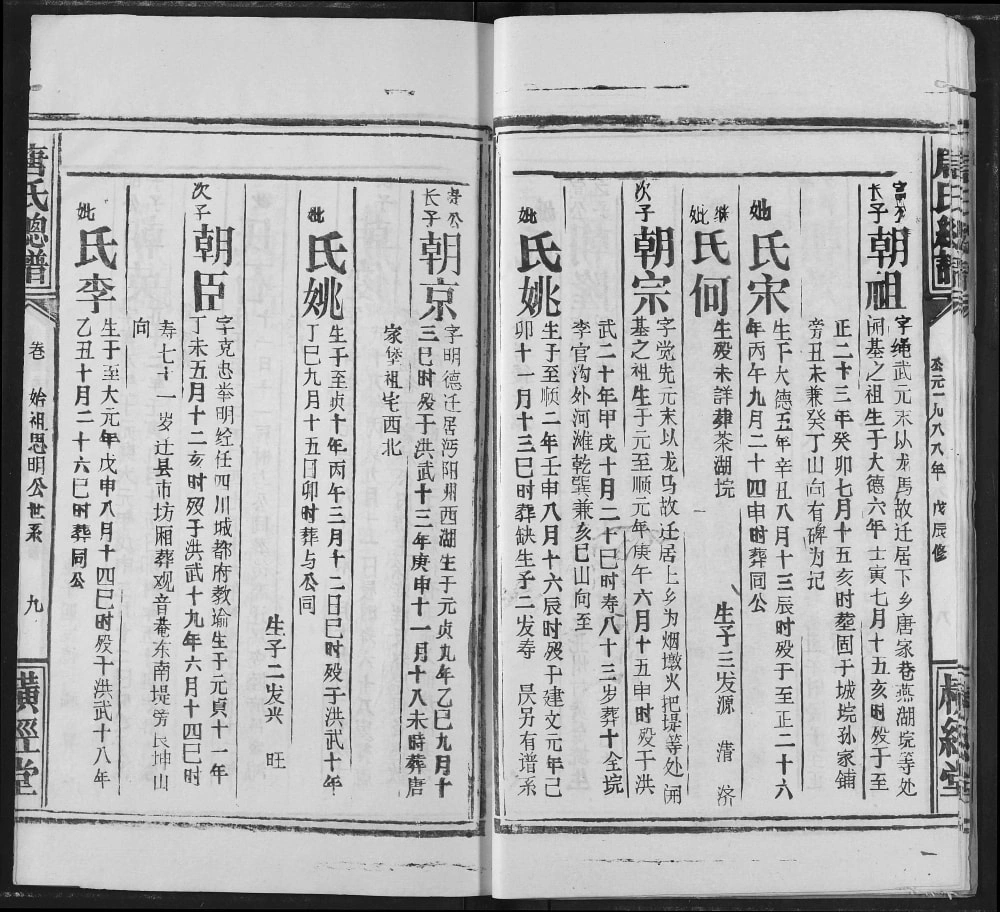 公元一九八八年 戊辰修
长子朝祖 字绳武元末以龙馬故迁居下乡唐家巷燕湖垸等处
闹基之祖生于大德六年士寅七月十五亥时殁于至
正二十三年癸卯七月十五亥时葬固于城垸孙家铺
旁丑未兼癸丁山向有碑为记
妣氏宋 生于大德五年辛丑八月十三辰时殁于至正二十六
年丙午九月二十四申时葬同公
继妣氏何 生殁未詳葬茶湖垸 生子三发源 清 济
次子朝宗 字觉先元末以龙马故迁居上乡为烟墩火把堤等处闹
基之祖生于元至顺元年庚午六月十五申时殁于洪
武二十年甲戌十月二十巳时寿八十三岁葬十全垸
李官沟外河滩乾巽兼亥巳山向至
妣氏姚 生于至顺二年壬申八月十六辰时殁于建文元年己
卯十一月十三巳时葬缺生子二发寿 昃另有谱系
长子朝京 字明德迁居沔阳州西湖生于元贞九年乙巳九月十
三巳时殁于洪武十三年庚申十一月十八未時葬唐
家堡祖宅西北
妣氏姚 生于至贞十年丙午三月十二日巳时殁于洪武十年
丁巳九月十五日卯时葬与公同
生子二发兴 旺
次子朝臣 字克忠举明经任四川城都府教谕生于元貞十一年
丁未五月十二亥时殁于洪武十九年六月十四巳时
寿七十一岁迁县市坊厢葬观音菴东南堤旁艮坤山
向
妣氏李 生于至大元年戊申八月十四巳时殁于洪武十八年
乙丑十月二十六巳时葬同公
唐氏總譜
卷 始祖思明公世系 九
横經堂